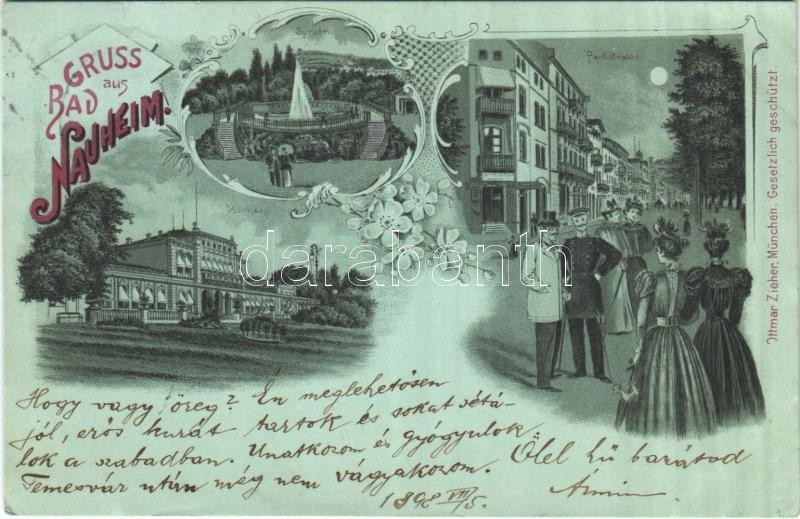 GRUSS
aus
BAD
NAUHEIM.
Sprudel
Parkstrasse
Kurhaus
Ottmar Zieher, München. Gesetzlich geschützt.
darabanth
Hogy vagy öreg? Én meglehetősen
jól, erős kurát tartok és sokat sétá-
lok a szabadban. Unatkozom és gyógyulok
Temesvár után még nem vágyakozom.
Ölel hű barátod
Ármin
1898 VIII/5.